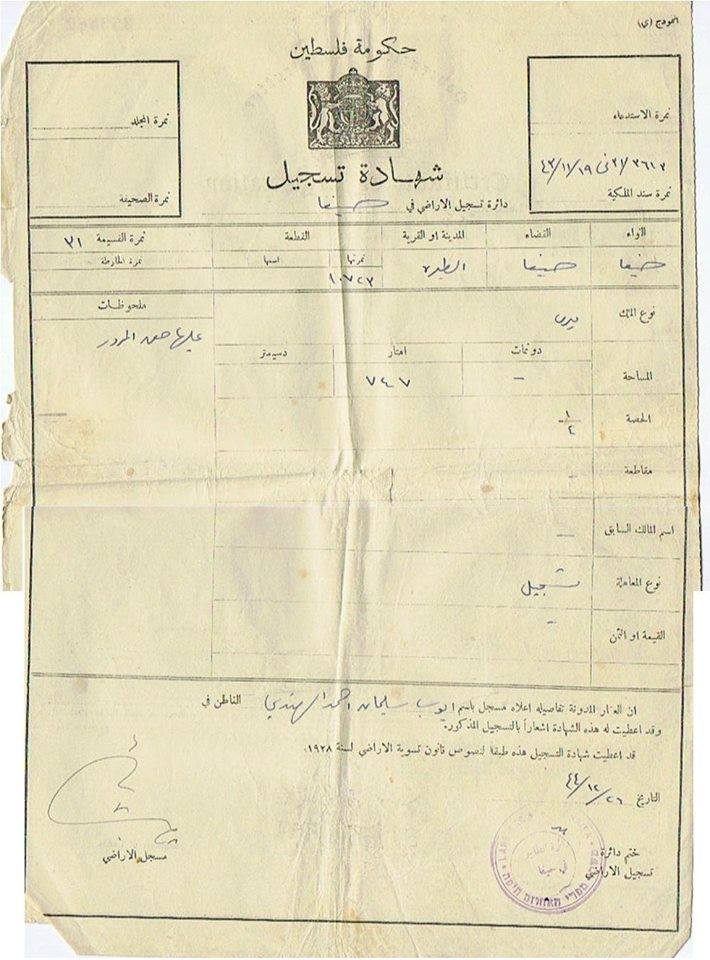 نموذج (ي)
حكومة فلسطين
شهادة تسجيل
دائرة تسجيل الاراضي في حيفا
نمرة الاستدعاء
نمرة سند الملكية
نمرة المجلد
نمرة الصحيفة
اللواء القضاء المدينة او القرية القطعة نمرة القسيمة ٣١
حيفا حيفا الطيرة نمرتها اسمها نمرة الخارطة
١٠٧٢٣
نوع الملك ميري
ملحوظات
عليها حق المرور
دونمات امتار دسيمتر
المساحة – ٧٤٧
الحصة ١/٤
مقاطعة –
اسم المالك السابق —
نوع المعاملة تسجيل
القيمة او الثمن –
ان العقار المدونة تفاصيله اعلاه مسجل باسم ايوب سليمان احمد الهندي القاطن في
وقد اعطيت له هذه الشهادة اشعاراً بالتسجيل المذكور.
قد اعطيت شهادة التسجيل هذه طبقا لنصوص قانون تسوية الاراضي لسنة ١٩٢٨.
التاريخ ٤٤/١٢/٢٦
ختم دائرة
تسجيل الاراضي
مسجل الاراضي